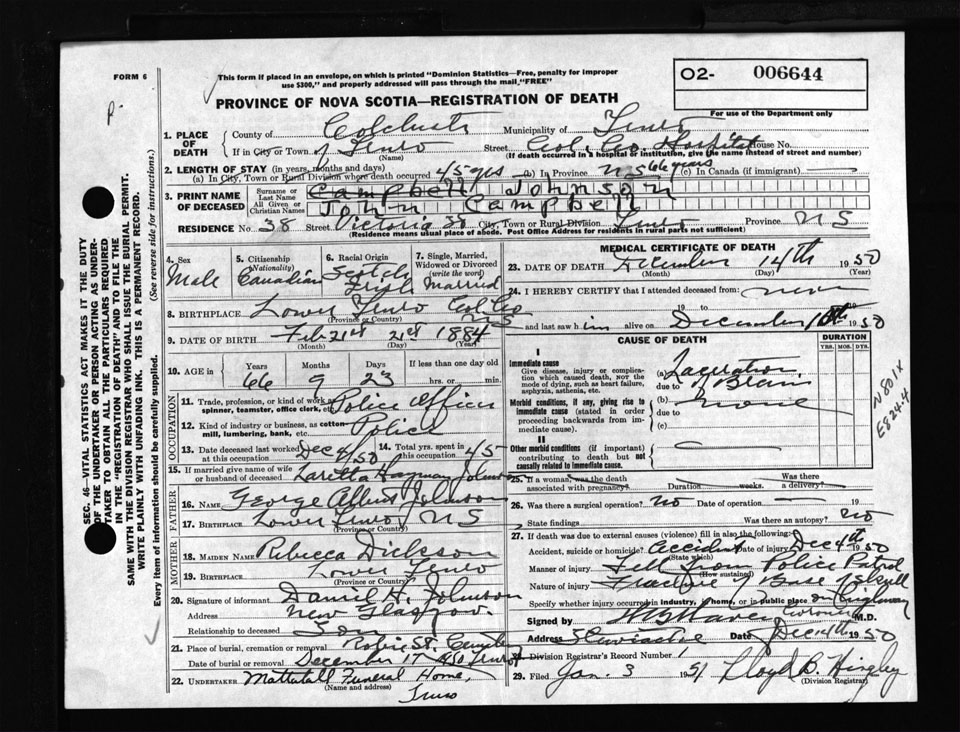 FORM 6
This form if placed in an envelope, on which is printed "Dominion Statistics—Free, penalty for improper
use $300," and properly addressed will pass through the mail, "FREE"
O2- 006644
For use of the Department only
PROVINCE OF NOVA SCOTIA—REGISTRATION OF DEATH
1. PLACE OF DEATH
County of Colchester Municipality of Truro
If in City or Town of Truro (Name) Street Col. Co. Hospital House No.
(If death occurred in a hospital or institution, give the name instead of street and number)
2. LENGTH OF STAY (in years, months and days)
(a) In City, Town or Rural Division where death occurred 45 yrs (b) In Province NS 66 years (c) In Canada (if immigrant)
3. PRINT NAME OF DECEASED
Surname or Last Name Campbell Johnson
All Given or Christian Names John Campbell
RESIDENCE No. 38 Street Victoria 38 City, Town or Rural Division Truro Province NS
(Residence means usual place of abode. Post Office Address for residents in rural parts not sufficient)
4. Sex Male
5. Citizenship (Nationality) Canadian
6. Racial Origin Scotch Irish
7. Single, Married, Widowed or Divorced (write the word) Married
8. BIRTHPLACE Lower Truro Col Co NS
(Province or Country)
9. DATE OF BIRTH Feb 21st 21st 1884
(Month) (Day) (Year)
10. AGE in Years 66 Months 9 Days 23 If less than one day hrs. or min.
OCCUPATION
11. Trade, profession, or kind of work as spinner, teamster, office clerk, etc. Police Officer
12. Kind of industry or business, as cotton-mill, lumbering, bank, etc. Police
13. Date deceased last worked at this occupation Dec 4/50 14. Total yrs. spent in this occupation 45
15. If married give name of wife or husband of deceased Hayman Johnson
FATHER
16. NAME George Albert Johnson
17. BIRTHPLACE Lower Truro NS
(Province or Country)
MOTHER
18. MAIDEN NAME Rebecca Dickson
19. BIRTHPLACE Lower Truro
(Province or Country)
20. Signature of informant Daniel H. Johnson
Address New Glasgow
Relationship to deceased Son
21. Place of burial, cremation or removal Robie St. Cemetery
Date of burial or removal December 17 1950 Truro
22. UNDERTAKER Mattatall Funeral Home,
(Name and address) Truro
MEDICAL CERTIFICATE OF DEATH
23. DATE OF DEATH December 14th 1950
(Month) (Day) (Year)
24. I HEREBY CERTIFY that I attended deceased from:
19 to 19
and last saw him alive on December 1950
CAUSE OF DEATH
DURATION
YRS. MOS. DYS.
I
Immediate cause
Give disease, injury or complication which caused death, not the mode of dying, such as heart failure, asphyxia, asthenia, etc.
(a) Laceration
due to of Brain
Morbid conditions, if any, giving rise to immediate cause (stated in order proceeding backwards from immediate cause).
(b) none
due to
(c)
II
Other morbid conditions (if important) contributing to death but not causally related to immediate cause.
N801X
E824.4
25. If a woman, was the death associated with pregnancy? Duration weeks. Was there a delivery?
26. Was there a surgical operation? no Date of operation 19
State findings Was there an autopsy? no
27. If death was due to external causes (violence) fill in also the following:
Accident, suicide or homicide? Accident Date of injury Dec 4th 1950
(State which)
Manner of injury Fell from Police Patrol
(How sustained)
Nature of injury Fracture of Base of Skull
Specify whether injury occurred in industry, home, or in public place on highway
Signed by Coroner M.D.
Address Stewiacke Date Dec 14th 1950
28. Division Registrar's Record Number
29. Filed Jan. 3 1951 Lloyd B. Hingley
(Division Registrar)
SEC. 46—VITAL STATISTICS ACT MAKES IT THE DUTY
OF THE UNDERTAKER OR PERSON ACTING AS UNDERTAKER TO OBTAIN ALL THE PARTICULARS REQUIRED
IN THE "REGISTRATION OF DEATH" AND TO FILE THE
SAME WITH THE DIVISION REGISTRAR WHO SHALL ISSUE THE BURIAL PERMIT.
WRITE PLAINLY WITH UNFADING INK. THIS IS A PERMANENT RECORD.
Every item of information should be carefully supplied. (See reverse side for instructions.)